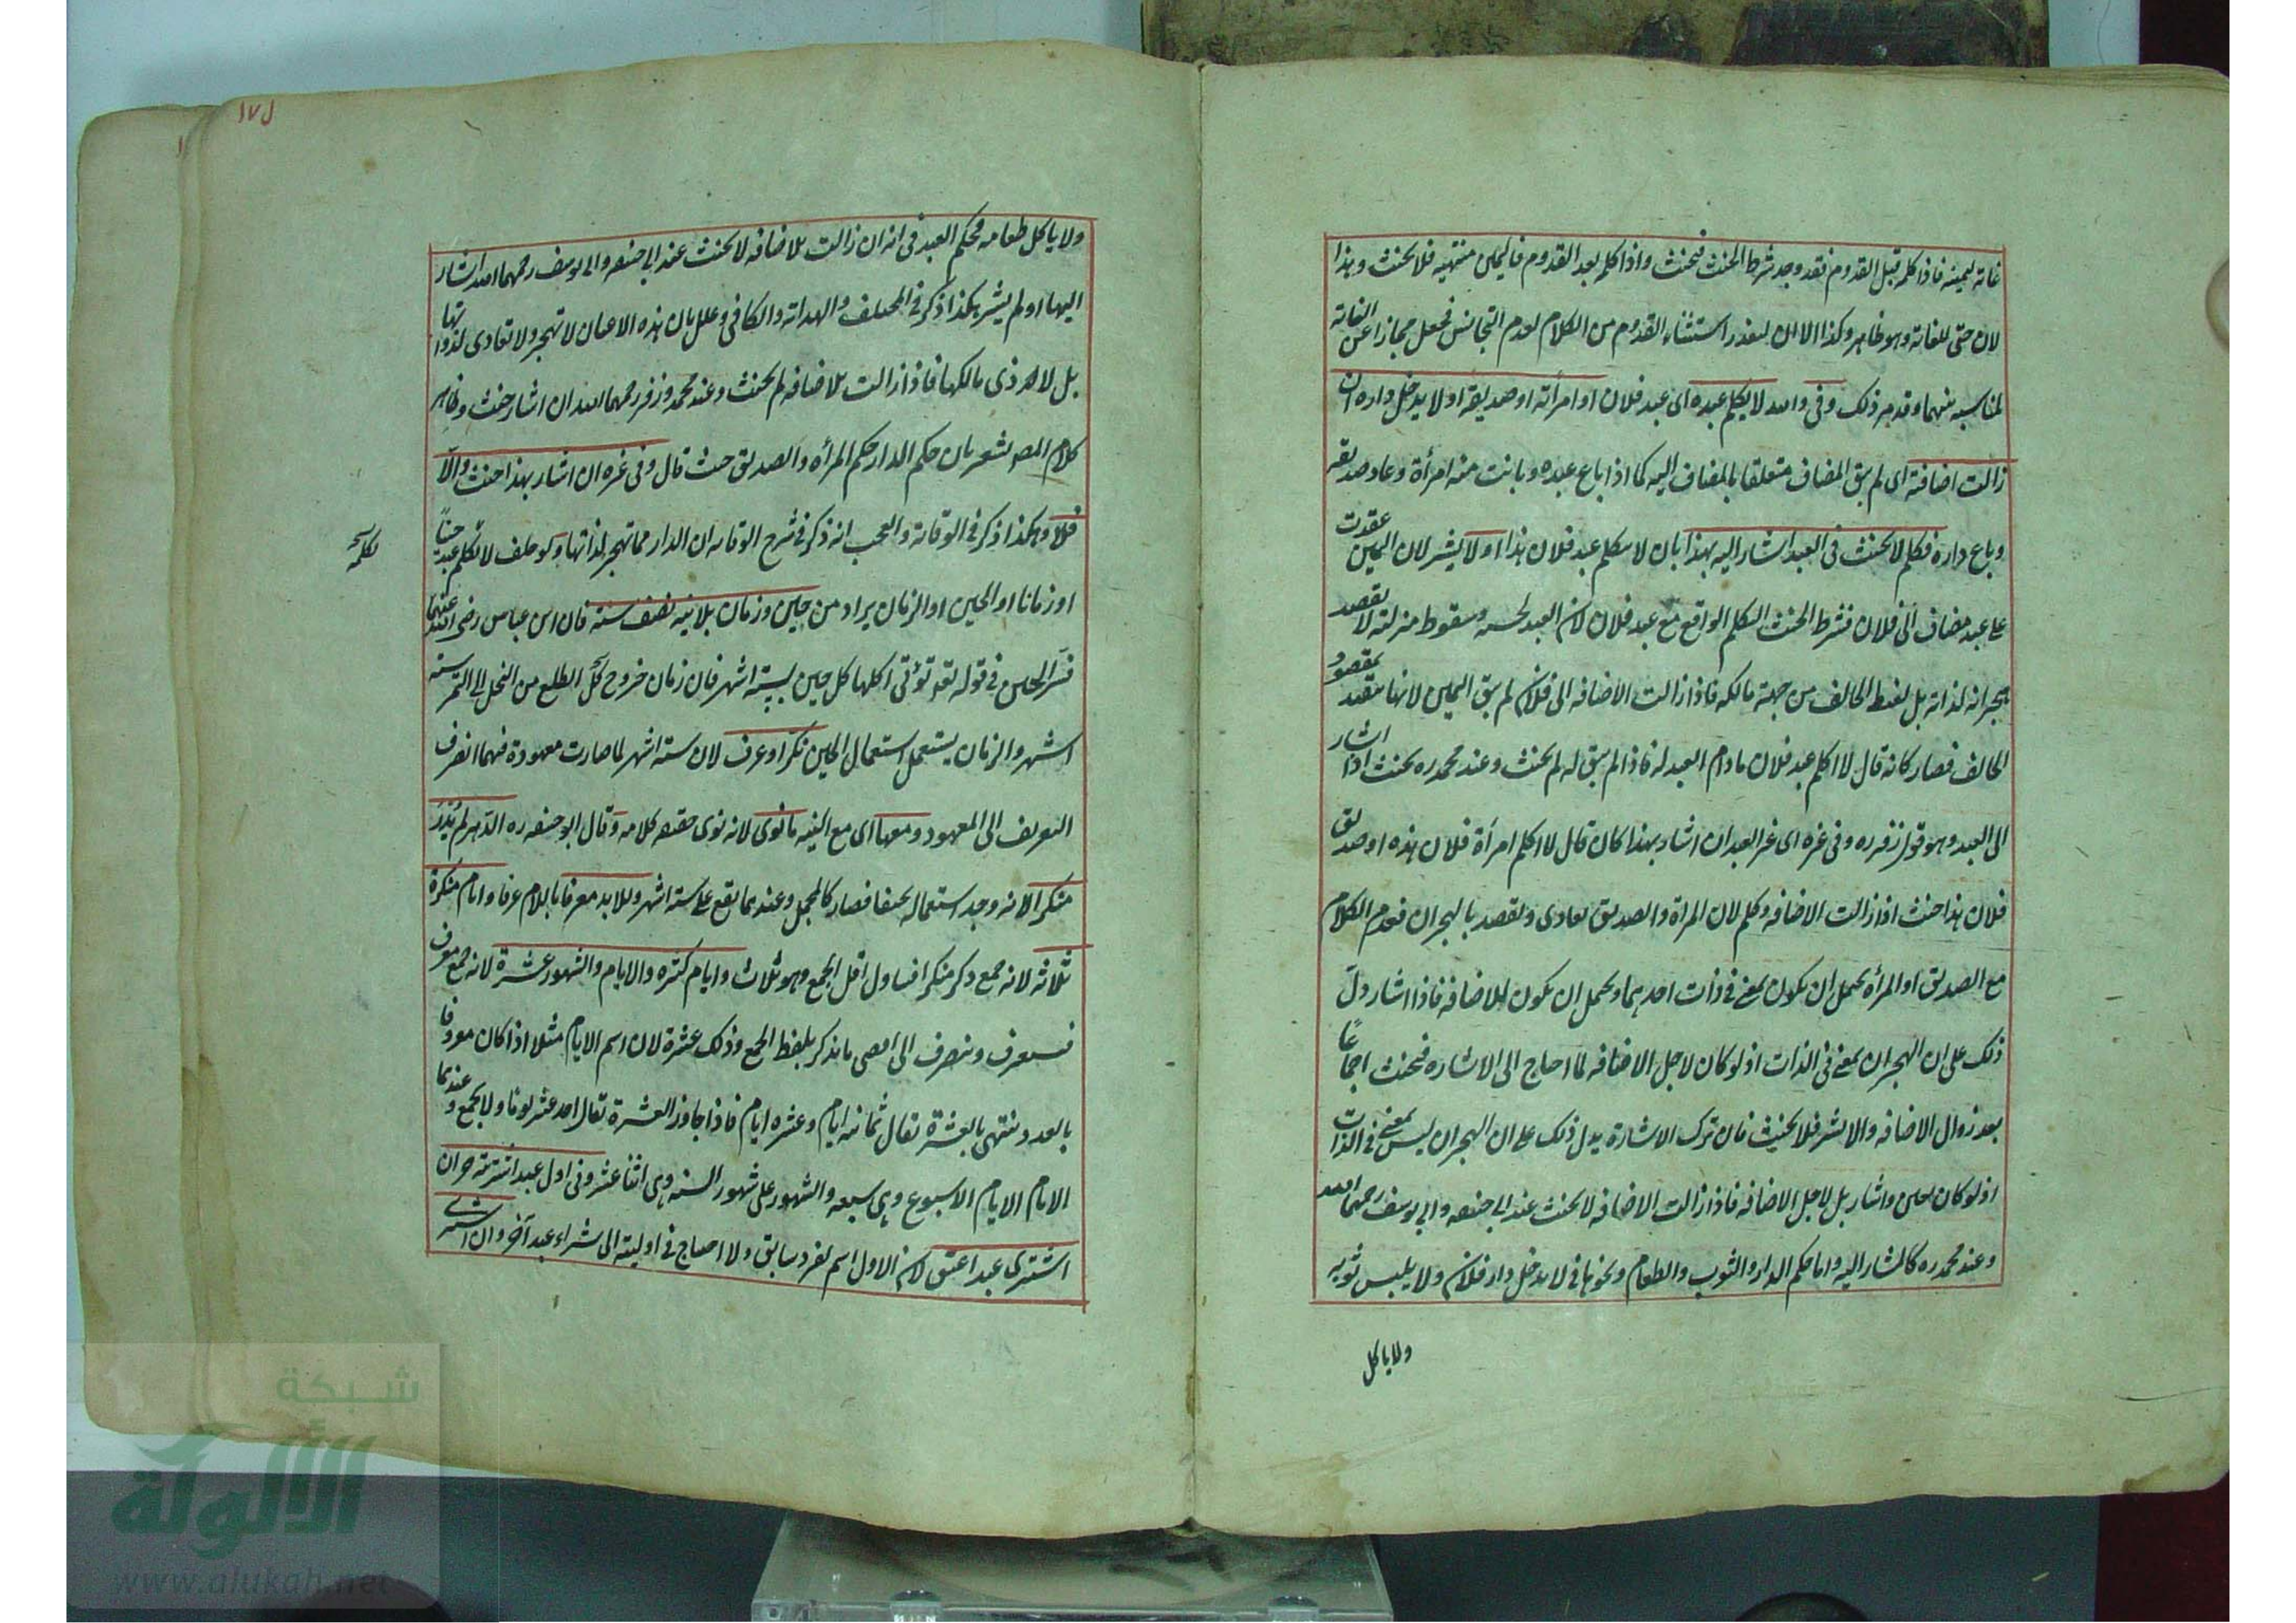 غاية ليمينه فاذا كلمه قبل القدوم فقد وجد شرط الحنث فيحنث واذا كلم بعد القدوم فاليمين منتهية فلا يحنث وهذا
لان حتى للغاية وهو ظاهر وكذا الا ان لتعذر استثناء القدوم من الكلام لعدم التجانس فجعل مجازا عن الغاية
لمناسبة بينهما وقد مر ذلك وفي والله لا يكلم عبده اى عبد فلان او امرأته او صديقه او لا يدخل داره ان
زالت اضافته اى لم يبق المضاف متعلقا بالمضاف اليه كما اذا باع عبده وبانت منه امرأة وعاد صديقه
وباع داره فكلم لا يحنث في العبد اشار اليه بهذا بان لا يكلم عبد فلان هذا او لا يشر لان اليمين عقدت
على عبد مضاف الى فلان فشرط الحنث التكلم الواقع مع عبد فلان لان العبد لخسه وسقوط منزلته لا يقصد
هجرانه لذاته بل لغيظ الحالف من جهة مالكه فاذا زالت الاضافه الى فلان لم يبق اليمين لانها مقيد بمقصود
الحالف فصار كانه قال لا اكلم عبد فلان ما دام العبد له فاذا لم يبق له لم يحنث وعند محمد ره يحنث اذا اشار
الى العبد وهو قول زفر ره وفي غره اى غر العبد ان اشار بهذا كان قال لا اكلم امرأة فلان هذه او صديق
فلان هذا حنث اذا زالت الاضافه وكلم لان المراة والصديق يعادى ويقصد بالهجران فعدم الكلام
مع الصديق او المرأة يحتمل ان يكون لمعنى في ذات احدهما ويحتمل ان يكون للاضافه فاذا اشار دل
ذلك على ان الهجران لمعنى في الذات اذ لو كان لاجل الاضافه لما احتاج الى الاشاره فيحنث اجماعا
بعد زوال الاضافه والا يشر فلا يحنث فان ترك الاشارة يدل ذلك على ان الهجران ليس لمعنى في الذات
اذ لو كان لعين واشار بل لاجل الاضافه فاذا زالت الاضافه لا يحنث عند ابي حنيفه وابي يوسف رحمهما الله
وعند محمد ره كالمشار اليه واما حكم الدار والثوب والطعام ونحوها في لا يدخل دار فلان ولا يلبس ثوبه
ولا ياكل
ل ١٧
ولا ياكل طعامه فحكم العبد في انه ان زالت الاضافه لا يحنث عند ابي حنيفه وابي يوسف رحمهما الله اشار
اليها او لم يشر هكذا ذكر في المختلف والهداية والكافي وعلل بان هذه الاعيان لا تهجر ولا تعادى لذواتها
بل لاذى مالكها فاذا زالت الاضافه لم يحنث وعند محمد وزفر رحمهما الله ان اشار حنث وظاهر
كلام المص يشعر بان حكم الدار حكم المرأه والصديق حيث قال وفي غره ان اشار بهذا حنث والا
فلا وهكذا ذكر في الوقاية والعجب انه ذكر في شرح الوقايه ان الدار مما تهجر لذاتها ولو حلف لا يكلم عبد حينا
يكلمه
او زمانا او الحين او الزمان يراد من حين وزمان بلا نيه نصف سنة فان ابن عباس رضى الله عنهما
فسر الحين في قوله تعه تؤتى اكلها كل حين بستة اشهر فان زمان خروج كل الطلع من النخل الى التمر سته
اشهر والزمان يستعمل استعمال الحين نكر او عرف لان سته اشهر لما صارت معهودة فيهما انصرف
التعريف الى المعهود ومعها اى مع النيه ما نوى لانه نوى حقيقه كلامه وقال ابو حنيفه ره الدهر لم يُدْرَ
منكرا لانه وجد استعماله مختلفا فصار كالمجمل وعندهما يقع على سته اشهر وللابد معرفا باللام عرفا وايام منكرة
ثلاثه لانه جمع ذكر منكرا فيتناول اقل الجمع وهو ثلاث وايام كثره والايام والشهور عشرة لانه جمع معرف
فيتعرف وينصرف الى اقصى ما يذكر بلفظ الجمع وذلك عشرة لان اسم الايام مثلا اذا كان معروفا
بالعدد ينتهى بالعشرة يقال ثمانيه ايام وعشره ايام فاذا جاوز العشرة يقال احد عشر يوما ولا يجمع وعندهما
الايام الايام الاسبوع وهي سبعه والشهور على شهور السنه وهي اثنا عشر وفي اول عبد اشتريته حر ان
اشترى عبدا عتق لان الاول اسم لفرد سابق ولا احتاج في اوليته الى شراء عبد آخر وان اشترى
شبكة
الألوكة
www.alukah.net